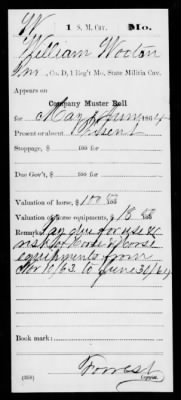 W | 1 S. M. Cav. | Mo.
William Wooton
Pvt., Co. D, 1 Reg't Mo. State Militia Cav.
Appears on
Company Muster Roll
for May & June, 1864.
Present or absent Present
Stoppage, $ 100 for
Due Gov't, $ 100 for
Valuation of horse, $ 100 00/100
Valuation of horse equipments, $ 18 50/100
Remarks: Pay due for use &
risk of Horse & Horse
equipments from
Nov 10/63 to June 30/64
Book mark:
Forrest
(358) Copyist.